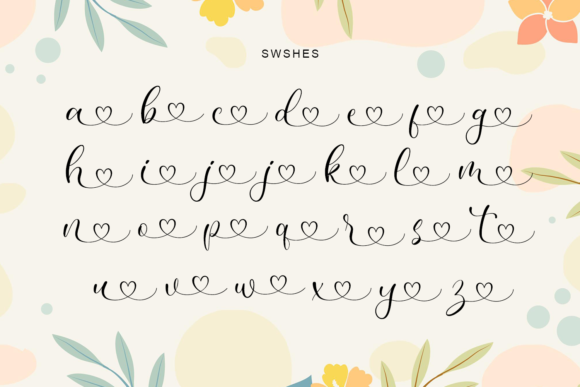 SWSHES
a b c d e f g
h i j j k l m
n o p q r s t
u v w x y z